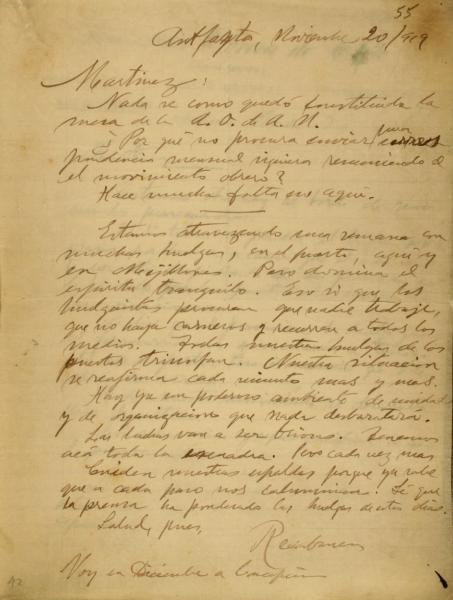 55
Antofagasta, Noviembre 20/919
Martinez:
Nada se como quedó constituida la
mesa de la A. O. de A. N.
¿Por qué no procura enviar una corres
pondencia mensual siquiera resumiendo
el movimiento obrero?
Hace mucha falta eso aquí.
Estamos atravezando una semana con
muchas huelgas, en el puerto, aquí y
en Mejillones. Pero domina el
espíritu tranquilo. Eso sí que los
huelguistas procuran que nadie trabaje,
que no haya carneros y recurren a todos los
medios. Todas nuestras huelgas de los
puertos triunfan. Nuestra situacion
se reafirma cada minuto mas y mas.
Hay ya un poderoso ambiente de unidad
y de organizacion que nada desbaratará.
Las luchas van a ser Tenemos
acá toda la escuadra. Pero cada vez mas
Cuiden nuestras espaldas porque ya sabe
que a cada paso nos calumnian. Sé que
la prensa ha ponderado las huelgas de estos dias.
Salud, pues,
Recabarren
Voy en Diciembre a Concepción
42